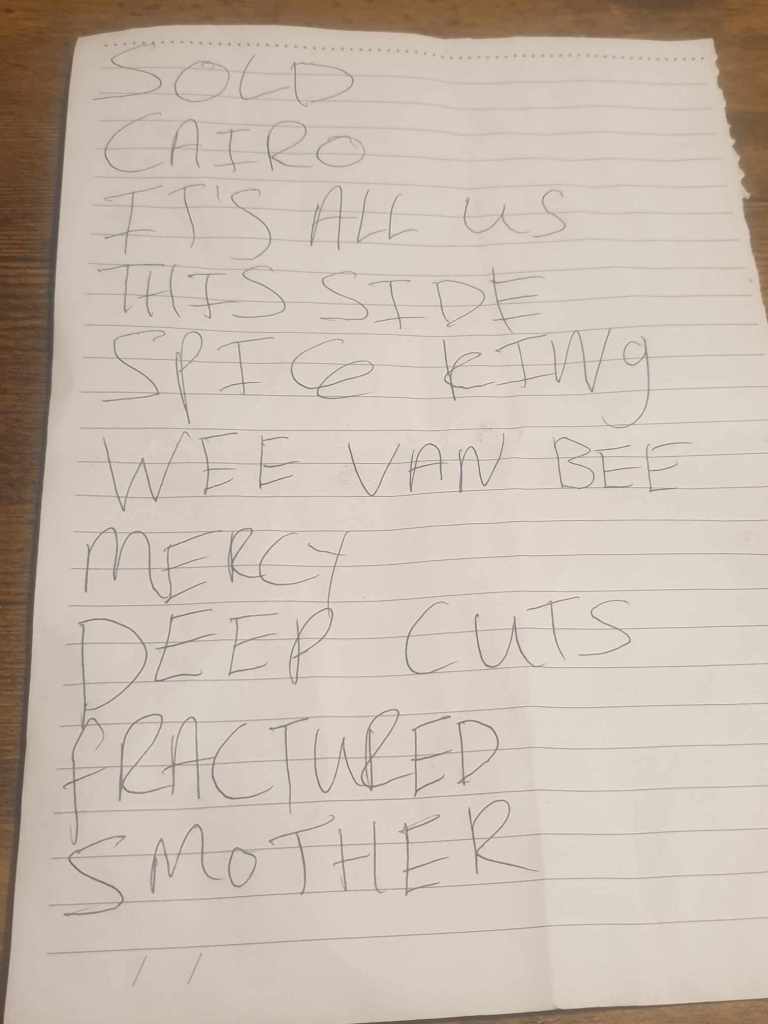 SOLD
CAIRO
IT'S ALL US
THIS SIDE
SPICE KING
WEE VAN BEE
MERCY
DEEP CUTS
FRACTURED
SMOTHER
/ /